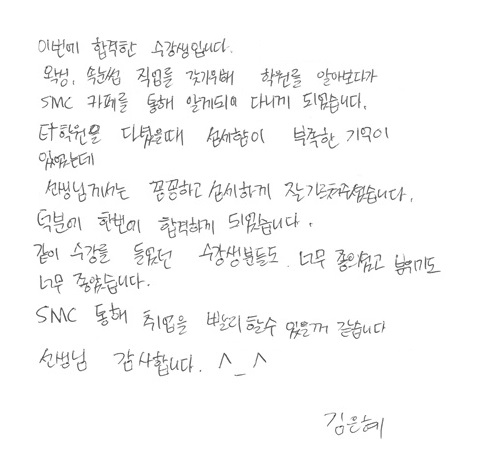 이번에 합격한 수강생입니다.
왁싱, 속눈썹 직업을 갖기위해 학원를 알아보다가
SMC 카페를 통해 알게되어 다니게 되었습니다.
타학원을 다녔을때 섬세함이 부족한 기억이
있었는데
선생님께서는 꼼꼼하고 섬세하게 잘 가르쳐주셨습니다.
덕분에 한번에 합격하게 되었습니다.
같이 수강를 들었던 수강생분들도 너무 좋으셨고 분위기도
너무 좋았습니다.
SMC 통해 취업을 빨리 할수 있을꺼 같습니다
선생님 감사합니다. ^_^
김은혜